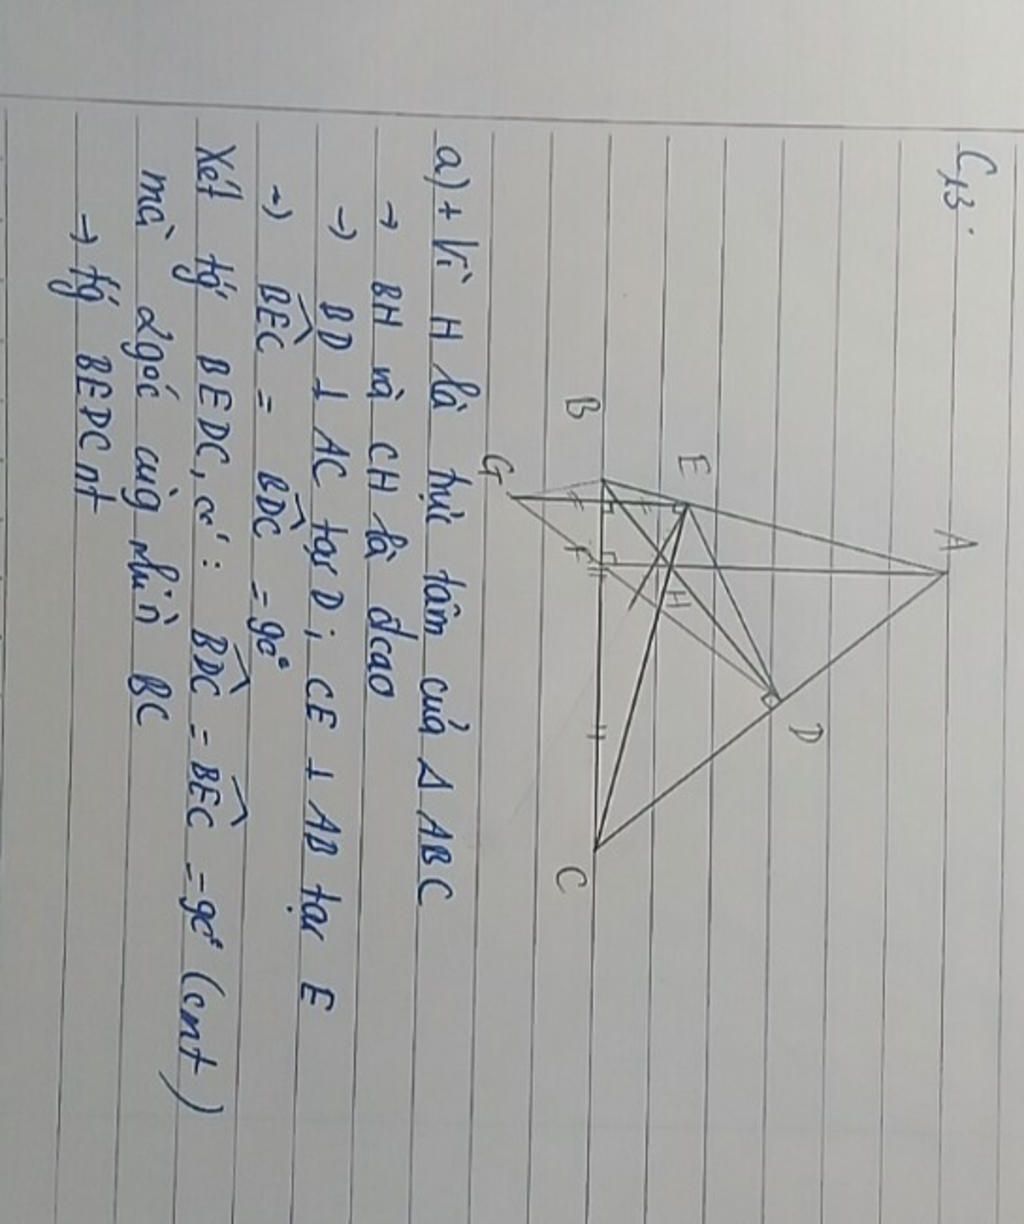 C13:
A
E
D
H
B
F
C
G
a) + Vì H là trực tâm của Δ ABC
→ BH và CH là đcao
→ BD ⊥ AC tại D; CE ⊥ AB tại E
→ BEC = BDC = 90°
Xét tg BEDC, có: BDC = BEC = 90° (cmt)
mà 2 góc cùng nhìn BC
→ tg BEDC nt